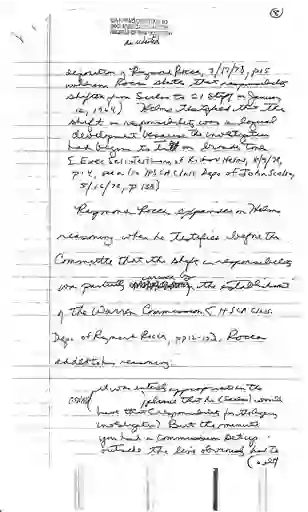 8
deposition of Raymond Rocca, 7/17/78, p15
wherein Rocca states that responsibility
shifted from Scelso to CI Staff in January
12, 1964) Helms testified that the
shift in responsibility was a logical
development because the investigation
had begun to take on broader tone
[Exec Sess Testimony of Richard Helms, 8/9/78,
p. 4, see also HSCA Class Depo of John Scelso,
5/16/78, p 138)
Raymond Rocca expanded on Helms
reasoning when he testified before the
Committee that the shift in responsibility
was partially caused by the establishment
of the Warren Commission (HSCA Class.
Depo of Raymond Rocca, pp12-13). Rocca
added to his reasoning:
it was entirely appropriate in the
phase that he (Scelso) would
have that (responsibility for the Agency
investigation) But the minute
you had a Commission set up
outside the line obviously had to